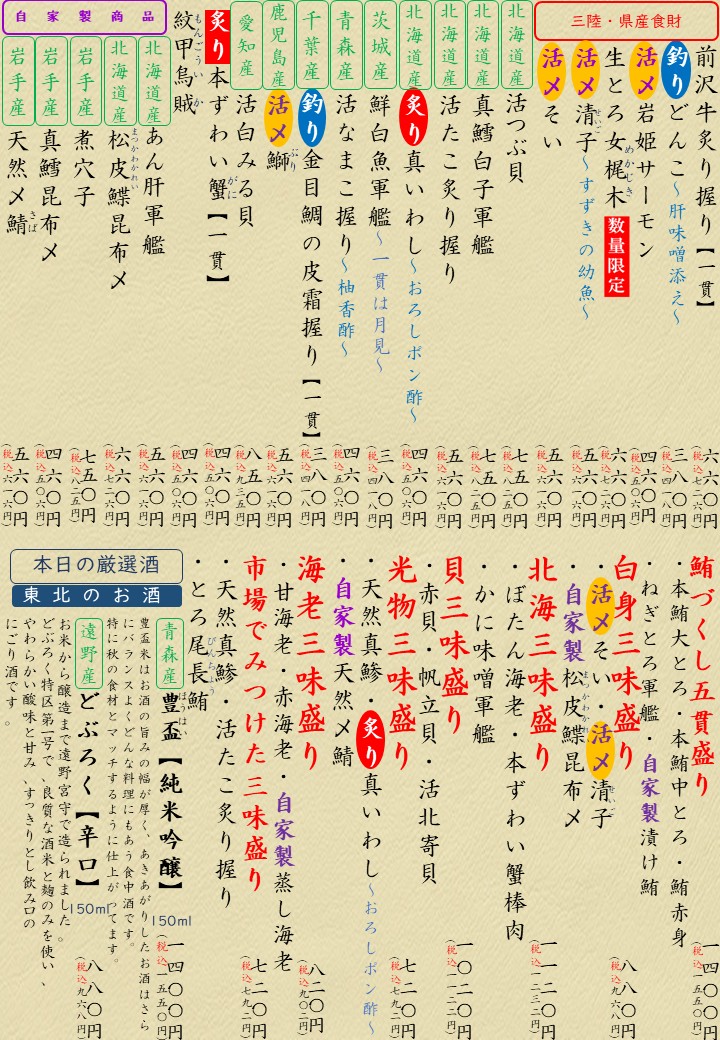 三陸・県産食財
前沢牛炙り握り【一貫】 六六〇円(税込七二六円)
釣りどんこ～肝味噌添え～ 三八〇円(税込四一八円)
活〆岩姫サーモン 四六〇円(税込五〇六円)
生とろ女梶木 めかじき 数量限定 六六〇円(税込七二六円)
活〆清子 せいご ～すずきの幼魚～ 五六〇円(税込六一六円)
活〆そい 五六〇円(税込六一六円)
北海道産 活つぶ貝 七五〇円(税込八二五円)
北海道産 真鱈白子軍艦 七五〇円(税込八二五円)
北海道産 活たこ炙り握り 五六〇円(税込六一六円)
北海道産 炙り真いわし～おろしポン酢～ 四六〇円(税込五〇六円)
茨城産 鮮白魚軍艦～一貫は月見～ 三八〇円(税込四一八円)
青森産 活なまこ握り～柚香酢～ 四六〇円(税込五〇六円)
千葉産 釣り金目鯛の皮霜握り【一貫】 三八〇円(税込四一八円)
鹿児島産 活〆鰤 ぶり 五六〇円(税込六一六円)
愛知産 活白みる貝 八五〇円(税込九三五円)
炙り本ずわい蟹 がに 【一貫】 四六〇円(税込五〇六円)
紋甲烏賊 もんごういか 四六〇円(税込五〇六円)
自家製商品
北海道産 あん肝軍艦 五六〇円(税込六一六円)
北海道産 松皮鰈昆布〆 まつかわかれい 六六〇円(税込七二六円)
岩手産 煮穴子 七五〇円(税込八二五円)
岩手産 真鱈昆布〆 四六〇円(税込五〇六円)
岩手産 天然〆鯖 さば 五六〇円(税込六一六円)
鮪づくし五貫盛り 一四〇〇円(税込一五五〇円)
・本鮪大とろ・本鮪中とろ・鮪赤身
・ねぎとろ軍艦・自家製漬け鮪
白身三味盛り 八八〇円(税込九六八円)
・活〆そい・活〆清子 せいご
・自家製松皮鰈昆布〆 まつかわかれい
北海三味盛り 一一二〇円(税込一二三二円)
・ぼたん海老・本ずわい蟹棒肉
・かに味噌軍艦
貝三味盛り 一〇二〇円(税込一一二二円)
・赤貝・帆立貝・活北寄貝
光物三味盛り 七二〇円(税込七九二円)
・天然真鯵・炙り真いわし～おろしポン酢～
・自家製天然〆鯖
海老三味盛り 八二〇円(税込九〇二円)
・甘海老・赤海老・自家製蒸し海老
市場でみつけた三味盛り 七二〇円(税込七九二円)
・天然真鯵・活たこ炙り握り
・とろ尾長鮪 びんちょう
本日の厳選酒
東北のお酒
青森産 豊盃 ほうはい 【純米吟醸】 150ml 一四〇〇円(税込一五五〇円)
豊盃米はお酒の旨みの幅が厚く、あきあがりしたお酒はさら
にバランスよくどんな料理にもあう食中酒です。
特に秋の食材とマッチするように仕上がってます。
遠野産 どぶろく【辛口】 150ml 八八〇円(税込九六八円)
お米から醸造まで遠野宮守で造られました。
どぶろく特区第一号で、良質な酒米と麹のみを使い、
やわらかい酸味と甘み、すっきりとし飲み口の
にごり酒です。